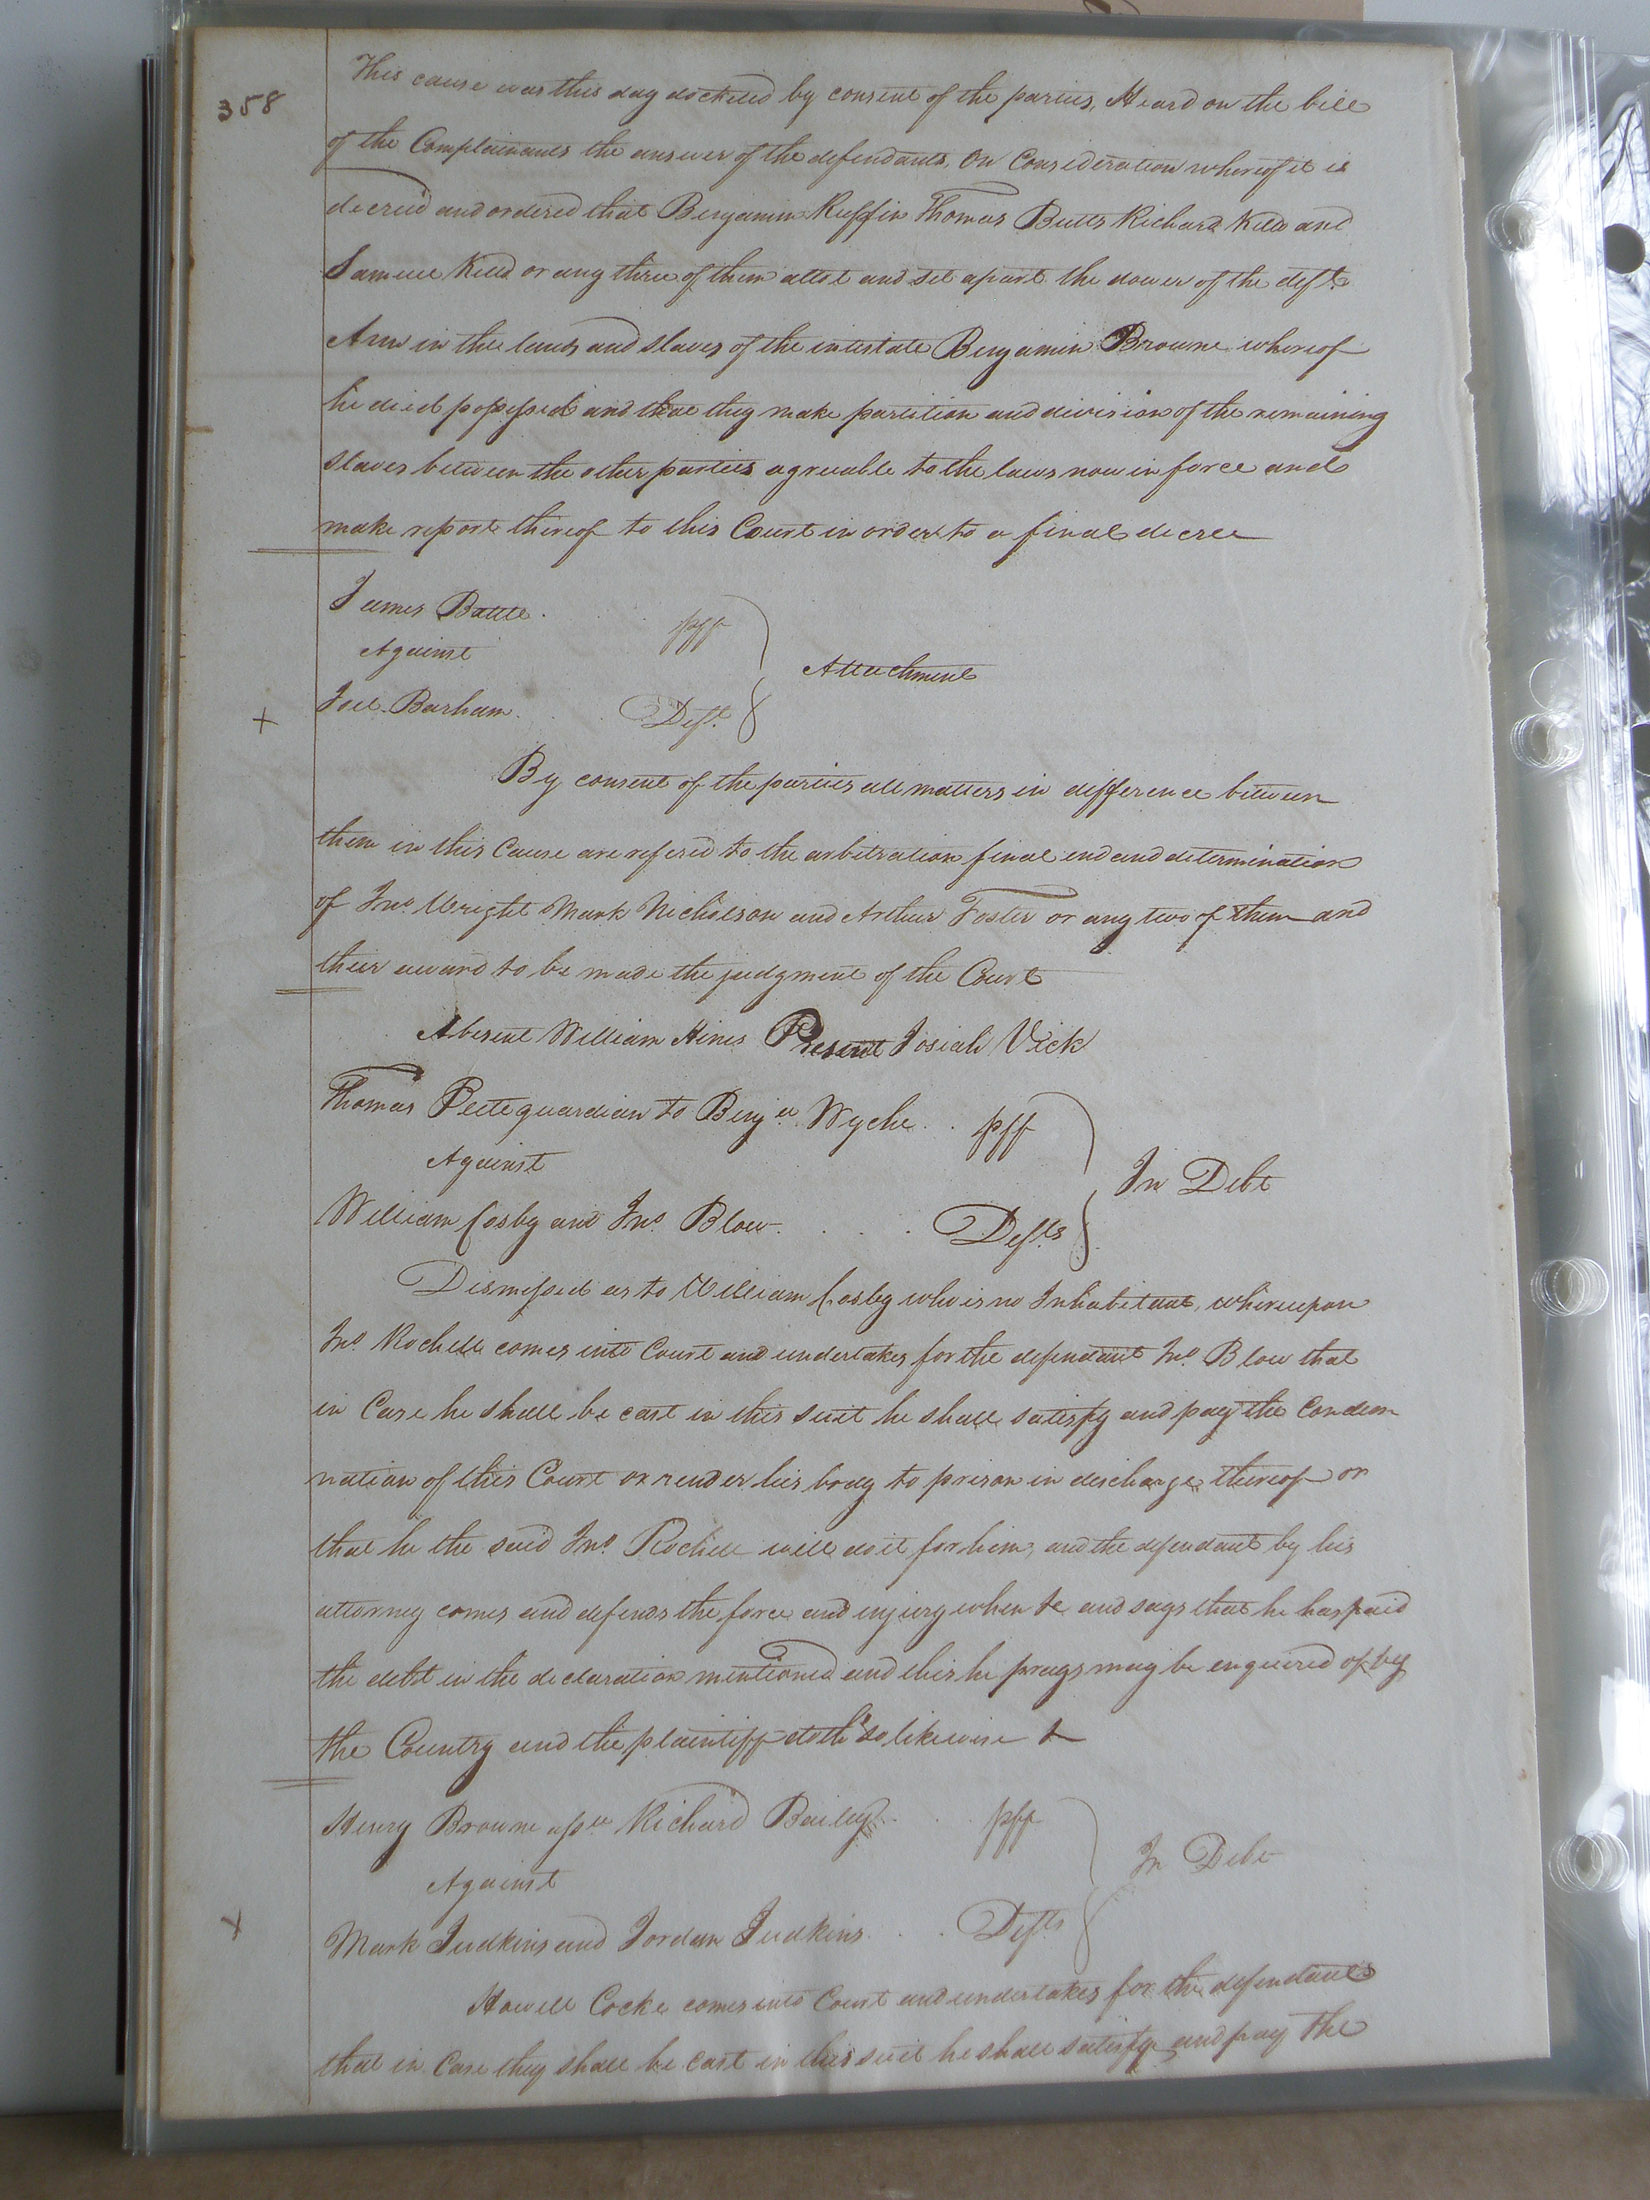 358
This cause was this day docketed by consent of the parties, Heard on the bill
of the Complainants the answer of the defendants, On Consideration whereof it is
decreed and ordered that Benjamin Ruffin Thomas Butts Richard Kello and
Samuel Kello or any three of them allot and set apart the dower of the deft.
Ann in the lands and slaves of the intestate Benjamin Browne whereof
he died possessed and that they make partition and division of the remaining
slaves between the other parties agreuable to the laws now in force and
make report thereof to this Court in order to a final decree
James Battle . . . plf
Against
Attachment
+ Joel Barham . . Deft.
By consent of the parties all matters in difference between
them in this Cause are refered to the arbitration final end and determination
of Jno. Wright Mark Nicholson and Arthur Foster or any two of them and
their award to be made the judgment of the Court
Absent William Hines Present Josiah Vick
Thomas Peete guardian to Benja. Wyche . . plf
Against
In Debt
William Cosby and Jno. Blow . . . Defts
Dismissed as to William Cosby who is no Inhabitant, whereupon
Jno. Rochell comes into Court and undertakes for the defendant Jno. Blow that
in Case he shall be cast in this suit he shall satisfy and pay the Condem
nation of this Court or render his body to prison in discharge thereof or
that he the said Jno. Rochell will do it for him, and the defendant by his
attorney comes and defends the force and injury when &c and says that he has paid
the debt in the declaration mentioned and this he prays may be enquired of by
the Country and the plaintiff doth so likewise &
Henry Browne assee Richard Bailey . . plf
Against
In Debt
x Mark Judkins and Jordan Judkins . . Defts
Howell Cocke comes into Court and undertakes for the defendants
that in Case they shall be cast in this suit he shall satisfy and pay the